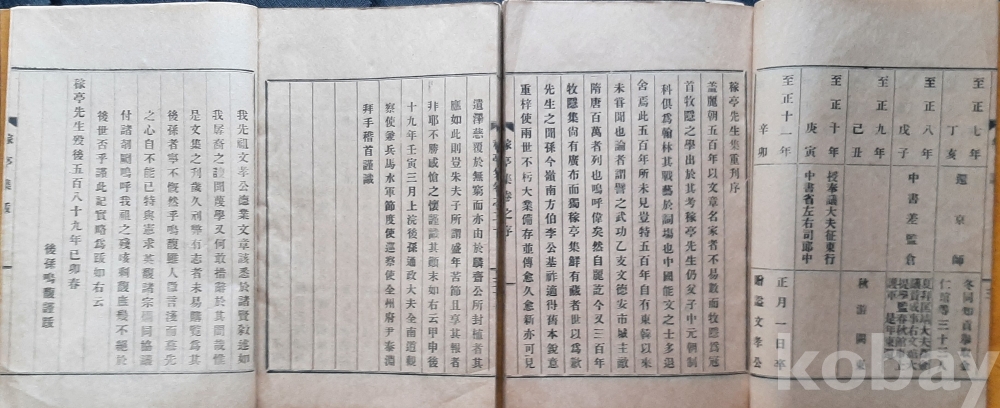 至正七年
丁亥
還京師
至正八年
戊子
中書差監倉
至正九年
己丑
秋游關東
至正十年
庚寅
授奉議大夫征東行
中書省左右司郎中
至正十一年
辛卯
正月一日卒
諡文孝公
稼亭先生集重刊序
蓋麗朝五百年以文章名家者不易數而牧隱爲冠
首牧隱之學出於其考稼亭先生仍父子中元朝制
科俱爲翰林其戰藝於詞場也中國能文之士多退
舍焉此五百年所未見豈特五百年自有東韓以來
未甞聞也論者謂譬之武功乙支文德安市城主敵
隋唐百萬者列也嗚呼偉矣然自麗訖今又三百年
牧隱集尙有廣布而獨稼亭集鮮有藏者世以爲歉
先生之聞孫今嶺南方伯李公基祚適得舊本銳意
重梓使兩世不朽大業備存並傳愈久愈新亦可見
稼亭集卷之序
遺澤慈覆於無窮而亦由於麟齋公所封植者其
應如此則豈朱夫子所謂盛年苦節且享其報者
非耶不勝感愴之懷謹識其顚末如右云甲申後
十九年壬寅三月上浣後孫通政大夫全南道觀
察使兼兵馬水軍節度使巡察使全州府尹泰淵
拜手稽首謹識
我先祖文孝公德業文章該悉於諸賢敍述如
我孱裔之謭聞蔑學又何敢揚於其間哉惟
是文集之刊歲久刓弊有志者未易購覽爲其
後孫者寧不慨然乎鳴馥雖人微言淺而慕先
之心自不能已特與憲求英馥諸宗極同協議
付諸剞劂嗚呼我祖之殘
後世否乎謹此記實略爲跋如右云
稼亭先生歿後五百八十九年己卯春
後孫鳴馥謹跋
稼亭集跋
kobay